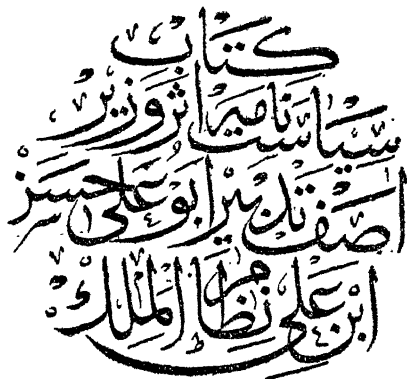 كتاب
سیاست نامه اثر وزیر
اصف تدبیر ابو علی حسن
ابن علی نظام الملك